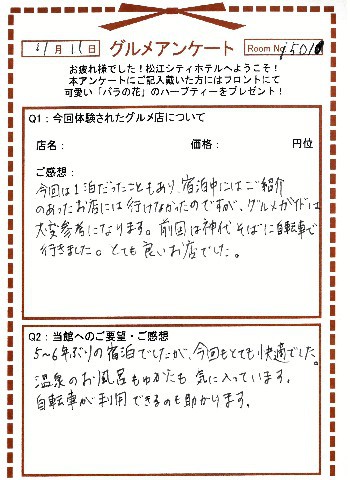 11月11日 グルメアンケート Room No.
お疲れ様でした!松江シティホテルへようこそ!
本アンケートにご記入戴いた方にはフロントにて
可愛い「バラの花」のハーブティーをプレゼント!
Q1:今回体験されたグルメ店について
店名: 価格: 円位
ご感想:
今回は1泊だったこともあり、宿泊中にはご紹介
のあったお店には行けなかったのですが、グルメガイドは
大変参考になります。前回は神代そばに自転車で
行きました。とても良いお店でした。
Q2:当館へのご要望・ご感想
5〜6年ぶりの宿泊でしたが、今回もとても快適でした。
温泉のお風呂もゆかたも気に入っています。
自転車が利用できるのも助かります。